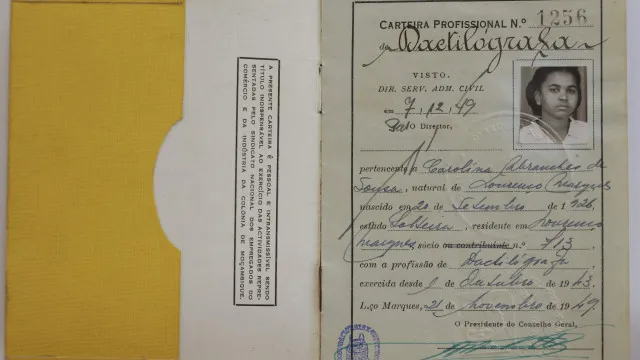 A PRESENTE CARTEIRA É PESSOAL E INTRANSMISSÍVEL SENDO
TÍTULO INDISPENSÁVEL AO EXERCÍCIO DAS ACTIVIDADES REPRE-
SENTADAS PELO SINDICATO NACIONAL DOS EMPREGADOS DO
COMÉRCIO E DA INDÚSTRIA DA COLÓNIA DE MOÇAMBIQUE.
CARTEIRA PROFISSIONAL N.º 1256
de Dactilógrafa
VISTO.
DIR. SERV. ADM. CIVIL
em 7/12/49
O Director,
pertencente a Carolina Abranches de
Sousa, natural de Lourenço Marques
nascido em 20 de Setembro de 1926,
estado Solteira, residente em Lourenço
Marques, sócio ou contribuinte n.º 713,
com a profissão de Dactilógrafa
exercida desde 1 de Outubro de 1943.
L.ço Marques, 21 de Novembro de 1949.
O Presidente do Conselho Geral,